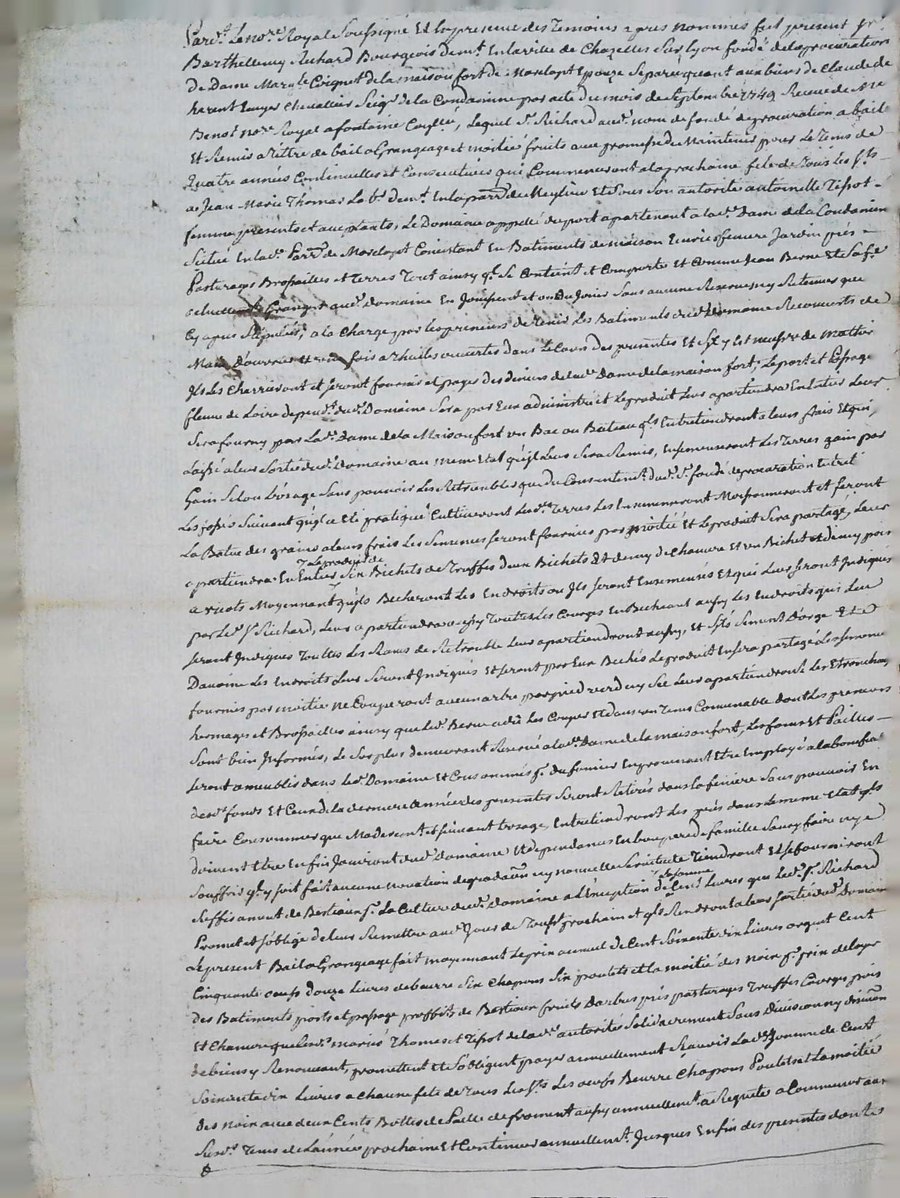 Pardt. Le nore. Royal Soussigné Et En presence des Temoins apres Nommés fut present Sr.
Barthellemy Richard Bourgeois demt. En la ville de Chazelles Sur Lyon fondé de la procuration
De Dame Marie Coignet de la maison fort de Marclopt Epouze Separée quant aux biens de Claude de
Ecuyer Chevallier Seigr. de la Condamine par acte du mois de Septembre 1749 Receue de Me
Benoit nore. Royal a fontaine, Lequel Sr. Richard audt. nom de fondé de procuration a Baillé
Et Remis a tittre de bail a Grangeage et moitié fruits aux promesses de Maintenir pour Le Tems de
Quatre années Continuelles et Consecutives qui Commenceront a la prochaine fete de Tous Les Sts
a Jean Marie Thomas Lab. demt. En la parr. de Meylieu Et Sous Son autorité antoinette Tissot
femme presents et acceptants, Le Domaine appellé du port apartenant a lade. Dame de la Condamine
Scitué En lade. Parre. de Marclopt Consistant En Batiments de maison Ecuries feniere Jardin prés
Pasturages Brossailles et Terres Tout ainsy ql. Se Contient et Comporte Et Comme Jean Berne Et Sa fe.
actuellemt. Granger audt. domaine En Jouissent et ont Du Jouir Sans aucune Reserve ny Retenue que
Cy apres Stipulés, a la Charge par les preneurs de tenir Les Batiments dudt. Domaine Recouverts de
Main d'ouvrier Et une fois a thuiles ouvertes dans Le Cours des presentes Et Sil y Est necessre de Mattier
Ils Les Charrieront et seront fournis et payés des deniers de lade. Dame de la maison fort, Le port et Passage
fleuve de Loire dependt. dudt. Domaine Sera par Eux administré et Le produit Leur apartiendra En Entier Leur
Sera fourny par Lade. Dame de la Maison fort un Bac ou Bateau qls Entretiendront a leurs frais Et qui
Laissé a leur Sortie dudt. Domaine au meme Etat quil Leur Sera Remis, Ensemenceront Les Terres gain par
Gain Selon L'usage Sans pouvoir Les Retroubler que du Consentemt. dudt. Sr. fondé de procuration
Les fossés Suivant quil a Eté pratiqué Cultiveront Lesdes. Terres Les Ensemenceront Moissonneront et feront
La Batue des grains a leurs frais Les Semences Seront fournies par moitié Et Le produit Sera partagé, Leur
apartiendra En Entier Le produit de Six Bichets de Truffes deux Bichets Et demy de Chanvre Et un Bichet Et demy pois
a ruots Moyennant quils Becheront Les Endroits ou Ils Seront Ensemensés Et qui Leur Seront Indiqués
par Ledt. Sr. Richard, Leur apartiendra aussy Toutes Les Courges En Bechant aussy Les Endroits qui Leur
Seront Indiqués Touttes Les Raves de Retrouble Leur apartiendront aussy, Et Sils Sement D'orge Et
Davoine Les Endroits Leur Seront Indiqués Et Seront par Eux Bechés Le produit En sera partagé Les Semences
fournies par moitié ne Couperont aucun arbre par pied verd ny Sec Leur apartiendront Les Etronchages
hermages et Brossailles ainsy que Ledt. Berne a dû Les Couper Et dans un Tems Convenable dont Les preneurs
Sont bien Informés, Le Surplus demeurant Reservé a lade. Dame de la maison fort, Les foins Et Pailles
Seront ameublis dans Ledt. Domaine Et Consommés Et du fumier En provenant Etre Employé a la bonifion
desdts. fonds Et Ceux de la derniere année des presentes Seront Retirés dans La feniere Sans pouvoir En
faire Consommer que Moderement et Suivant L'usage, Entretiendront Les prés dans Le meme Etat qls
doivent Etre Enfin Jouiront dudt. domaine Et dependances En bon pere de famille Sans y faire ny
Souffrir ql. y soit fait aucune novation degradation ny nouvelle Servitude Tiendront Et Se fourniront
Suffisament de Bestiaux pr. La Culture dudt. domaine a L'Exception de la somme de Cent Livres que Ledt. Sr. Richard
Promet et S'oblige de leur Remettre audt. Jour de Toussts. prochain et qls Rendront a leur Sortie dudt. Domaine
Le present Bail a Grangeage fait moyennant Le prix annuel de Cent Soixante dix Livres argent Cent
Cinquante oeufs douze Livres de beurre Six Chapons Six poulets et la moitié des noix pr. prix de loyer
des Batiments ports et passage proffits de Bestiaux fruits Darbres prés pasturages Truffes Courges pois
Et Chanvre que Lesdts. mariés Thomas et Tissot de lade. autorité Solidairement Sans Division ny discussion
de biens y Renonceant, promettent Et S'obligent payer annuellement Scavoir Lade. Somme de Cent
Soixante dix Livres a Chacune fete de Tous Les Sts. Les oeufs Beurre Chapons Poulets et La moitié
des noix avec deux Cents Bottes de Paille de froment aussy annuellemt. a Requette a Commencer aux
Susdts. Tems de L'année prochaine Et Continuer annuellemt. Jusques En fin des presentes dont Les